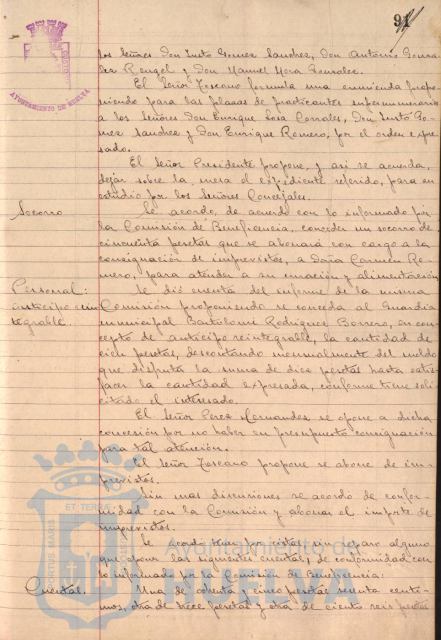 91
AYUNTAMIENTO DE HUELVA
los Señores Don Justo Gomez Sanchez, Don Antonio Gonza-
lez Rengel y Don Manuel Mora Gonzalez.
El Señor Toscano formula una enmienda propo-
niendo para las plazas de practicantes supernumerario
a los Señores Don Enrique Sosa Corrales, Don Justo Go-
mez Sanchez y Don Enrique Romero, por el orden expre-
sado.
El Señor Presidente propone, y asi se acuerda,
dejar sobre la mesa el expediente referido, para su
estudio por los Señores Concejales.
Socorro
Se acordo, de acuerdo con lo informado por
la Comisión de Beneficencia, conceder un socorro de
cincuenta pesetas que se abonará con cargo a la
consignación de imprevistos, a Doña Carmen Ro-
mero, para atender a su curación y alimentación
Personal:
anticipo rein
tegrable
Se dió cuenta del informe de la misma
Comisión proponiendo se conceda al Guardia
municipal Bartolomé Rodriguez Borrero, en con-
cepto de anticipo reintegrable, la cantidad de
cien pesetas, descontando mensualmente del sueldo
que disfruta la suma de diez pesetas hasta satis-
facer la cantidad expresada, conforme tiene soli
citado el interesado.
El Señor Perez Hernandez se opone a dicha
concesión por no haber en presupuesto consignación
para tal atención.
El Señor Toscano propone se abone de im-
previstos.
Sin mas discusiones se acordo de confor-
midad con la Comisión y abonar el importe de
imprevistos.
Se acordo por vistas sin reparo alguno
que las siguientes cuentas, de conformidad con
lo informado por la Comisión de Beneficencia:
Cuentas.
Una de ochenta y cinco pesetas setenta centi-
mos, otra de trece pesetas y otra de ciento seis pesetas
ET TERRAE
PORTUS MARIS
Ayuntamiento de
HUELVA